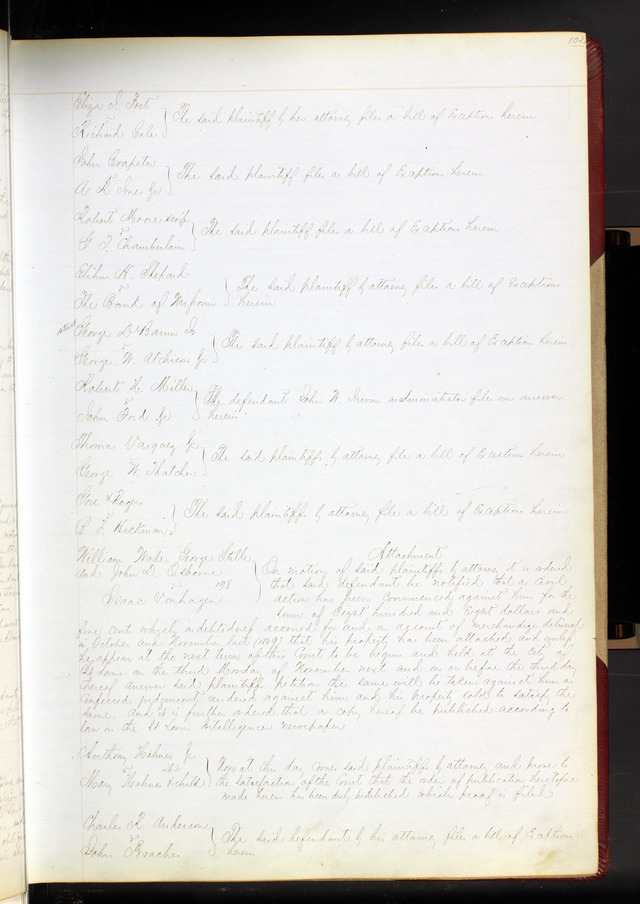 102
Eliza S. Fort
v
Richard Cole
The said plaintiff by her attorney files a bill of Exceptions herein
John
v
A
The said plaintiff files a bill of Exceptions herein
Robert Moore
v
G T Chamberlain
The said plaintiff files a bill of Exceptions herein
Elihu H. Shepard
v
The Bank of Missouri
The said plaintiff by attorney files a bill of Exception
herein
George
v
George W. Atchison
The said plaintiff by attorney files a bill of Exception herein
Robert H. Miller
v
John Ford
The defendant John W. administrator files an answer
herein
Thomas Vasquez
v
George W Thatcher
The said plaintiffs by attorney file a bill of Exceptions herein
v
B. F. Hickman
The said plaintiffs by attorney file a bill of Exceptions herein
William Wade George
and John D. Osborne
v 198
Isaac Vonhagen
Attachment
On motion of said plaintiffs by attorney it is ordered
that said defendant be notified that a Civil
action has been commenced against him for the
sum of Eight hundred and Eight dollars and
five cent which indebtedness accrued for and a account of merchandise delivered
in October and November last that his property has been attached and unless
he appear at the next term of this Court to be begun and held at the City of
St Louis on the third Monday of November next and on or before the third day
thereof answer said plaintiffs Petition the same will be taken against him as
Confessed judgement rendered against him and his property sold to satisfy the
same. And it is further ordered that a copy hereof be published according to
law in the St Louis Intelligence newspaper
Anthony Hahner
v
Mary Hahner &
Now at this day come said plaintiffs by attorney and prove to
the satisfaction of the Court that the order of publication heretofore
made herein has been duly published which proof is filed
Charles R. Anderson
v
John
The said defendant by his attorney files a bill of Exceptions
herein